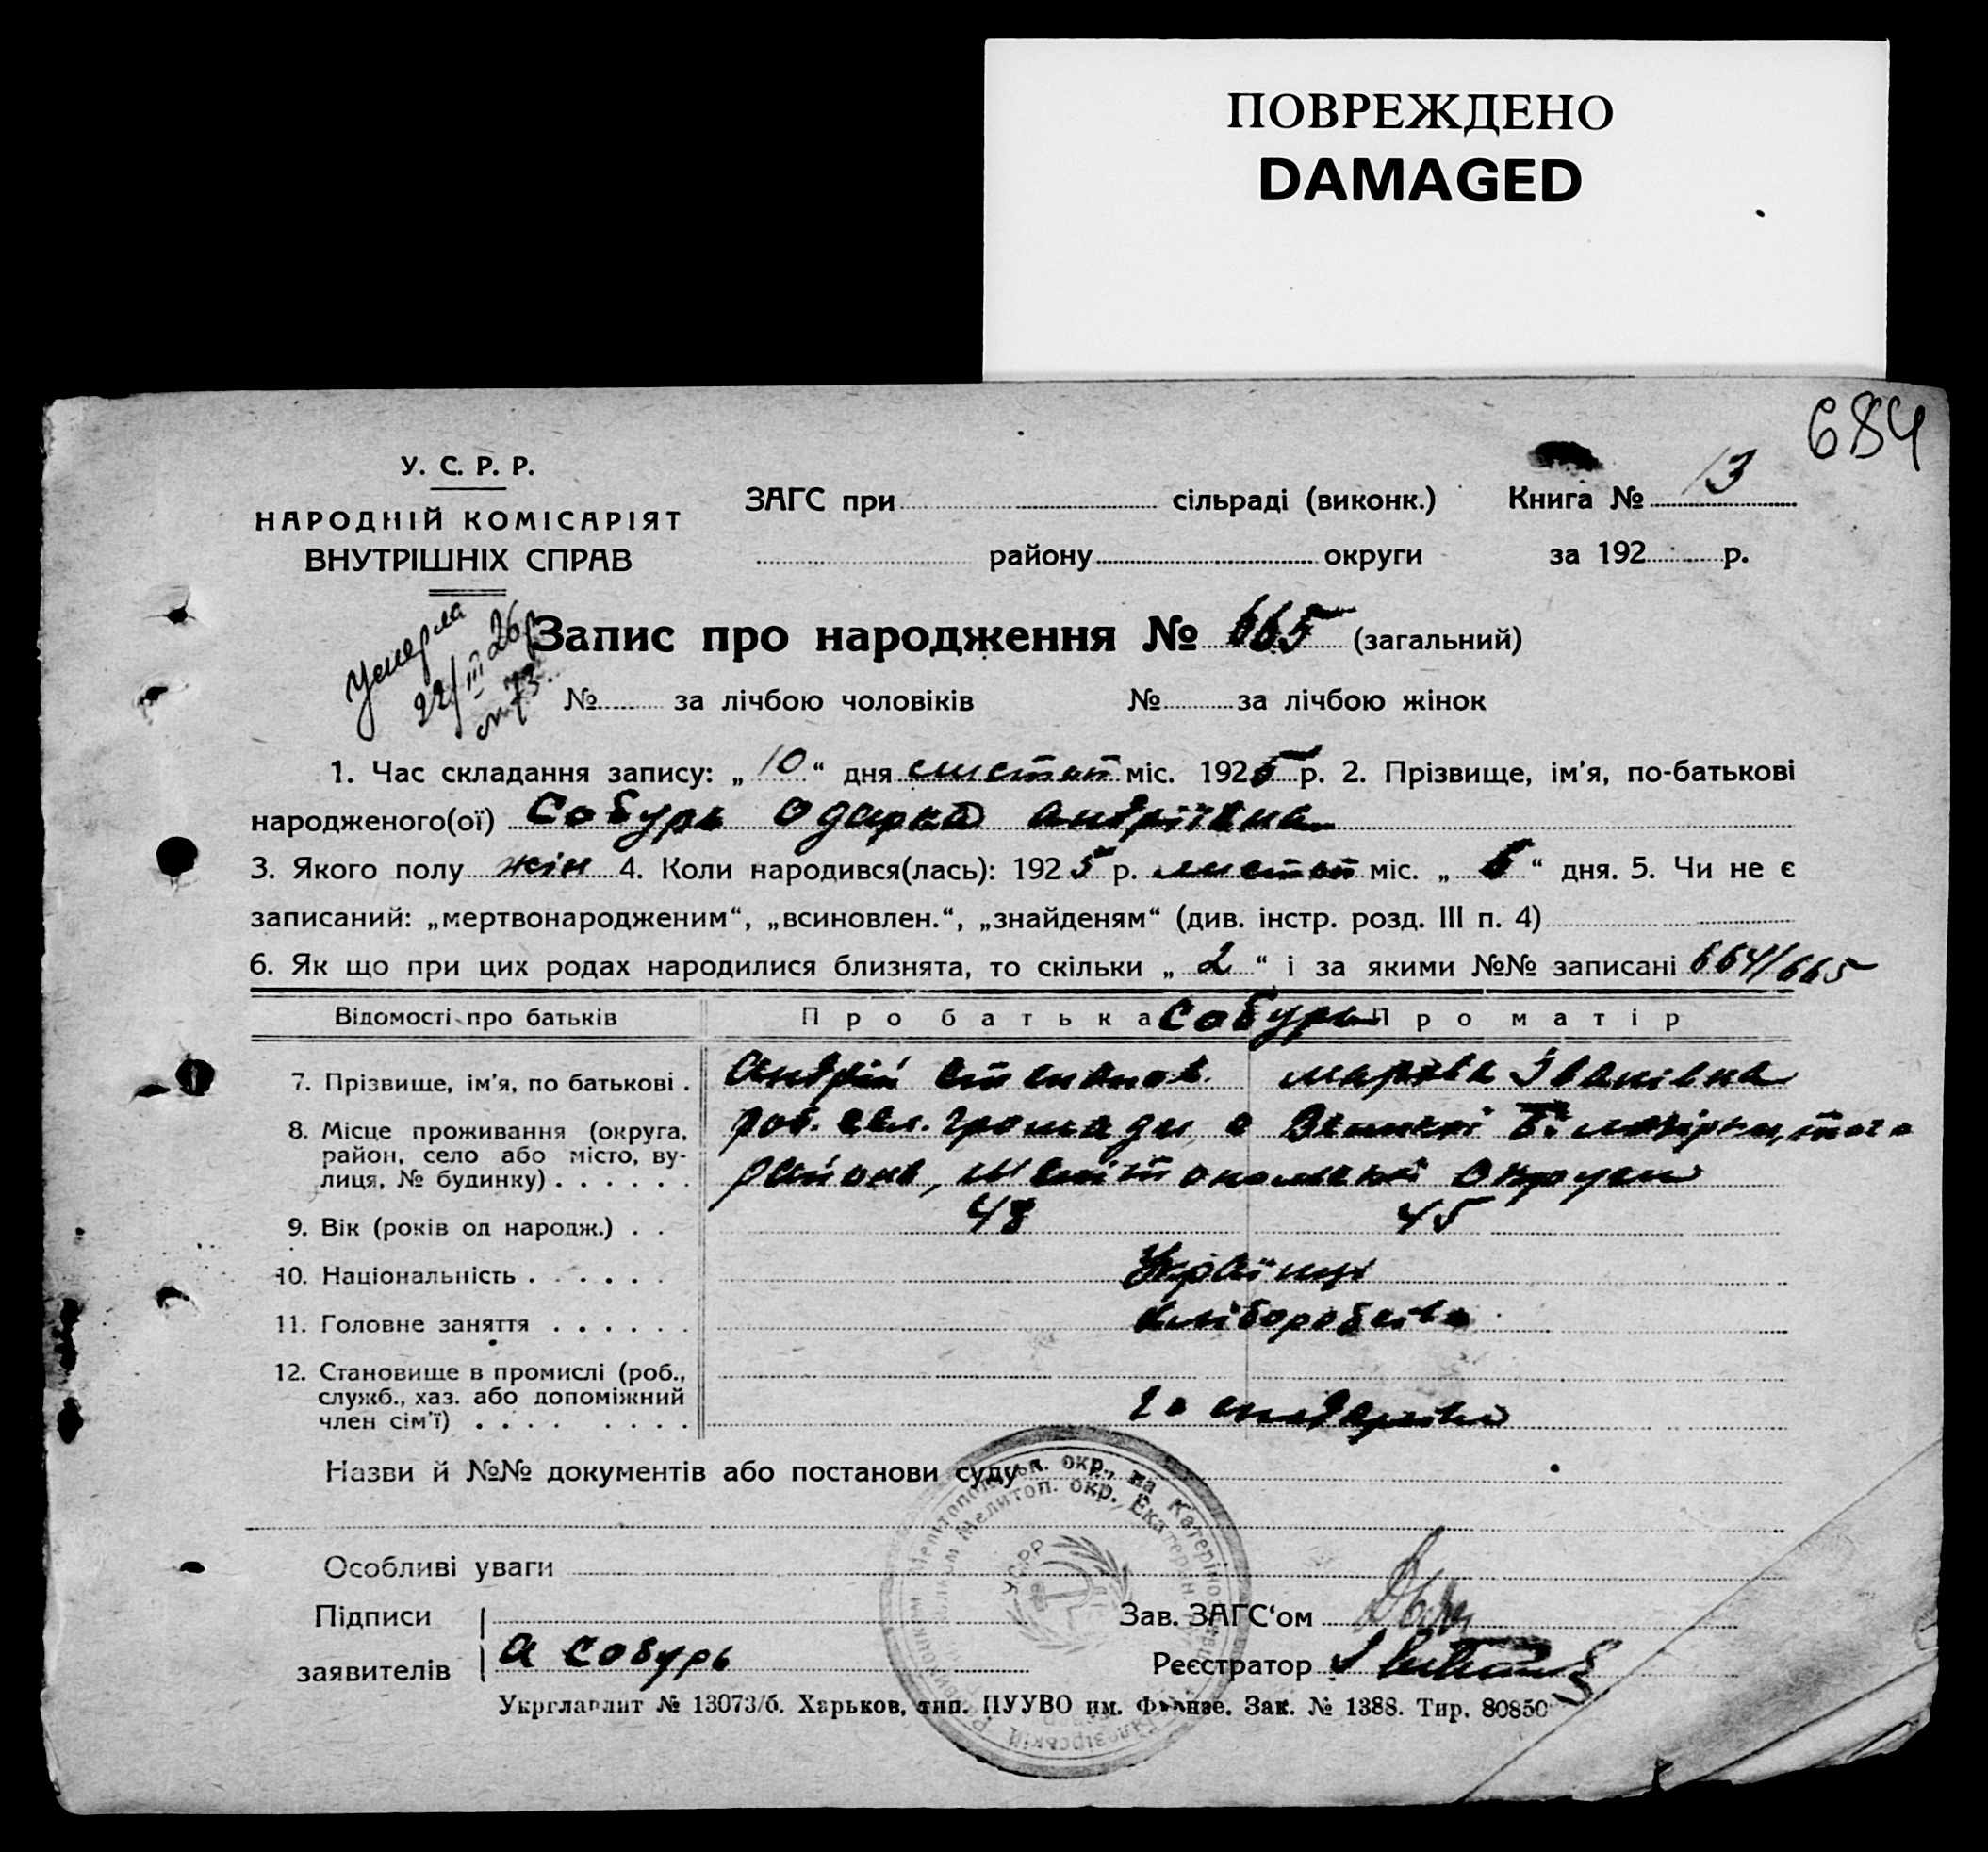 ПОВРЕЖДЕНО
DAMAGED
684
У. С. Р. Р.
НАРОДНІЙ КОМІСАРІЯТ
ВНУТРІШНІХ СПРАВ
ЗАГС при сільраді (виконк.) Книга № 13
району округи за 192 р.
Умерла
22/III 26 р
№ 73.
Запис про народження № 665 (загальний)
№ за лічбою чоловіків № за лічбою жінок
1. Час складання запису: „ 10 “ дня листоп міс. 1925 р. 2. Прізвище, ім’я, по-батькові
народженого(ої) Собурь Одарка Андріївна
3. Якого полу жін 4. Коли народився(лась): 1925 р. листоп міс. „ 6 “ дня. 5. Чи не є
записаний: „мертвонародженим“, „всиновлен.“, „знайденям“ (див. інстр. розд. III п. 4)
6. Як що при цих родах народилися близнята, то скільки „ 2 “ і за якими №№ записані 664/665
Відомості про батьків Про батька Собурь Про матір
7. Прізвище, ім’я, по батькові . Андрій Степанов. Марфа Іванівна
8. Місце проживання (округа, район, село або місто, вулиця, № будинку) . . . . . . громади с Великої Білозірки, того
району, Мелітопольської Округи
9. Вік (років од народж.) . . 48 45
10. Національність . . . . . . Українці
11. Головне заняття . . . . . . хліборобство
12. Становище в промислі (роб., служб., хаз. або допоміжний член сім’ї) . . . . . . . .
Назви й №№ документів або постанови суду
Особливі уваги
Підписи
заявителів А Собурь
Зав. ЗАГС‘ом
Реєстратор
Укрглавлит № 13073/б. Харьков, тип. ПУУВО им. Фрунзе. Зак. № 1388. Тир. 80850